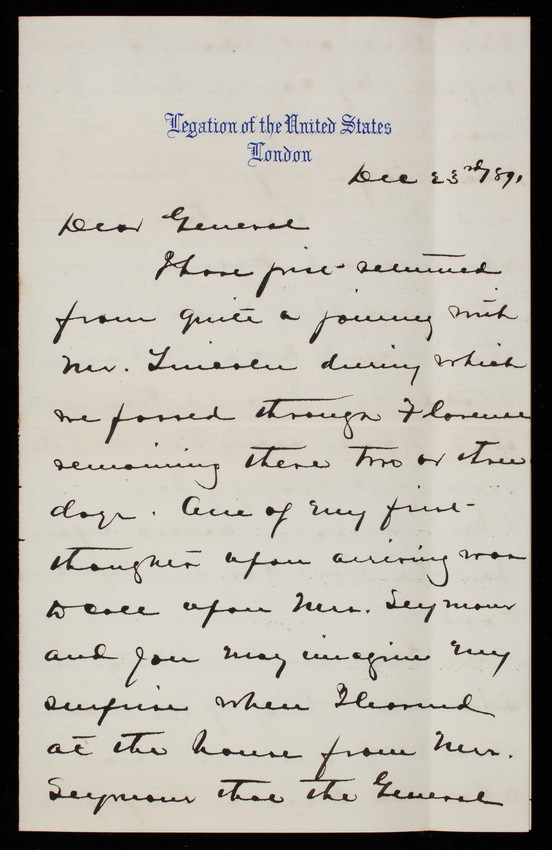 Legation of the United States
London
Dec 23rd/891
Dear General
I have just returned
from quite a journey with
Mr. Lincoln during which
we passed through Florence
remaining there two or three
days. One of my first
thoughts upon arriving was
to call upon Mrs. Seymour
and you may imagine my
surprise when I learned
at the house from Mrs.
Seymour that the General